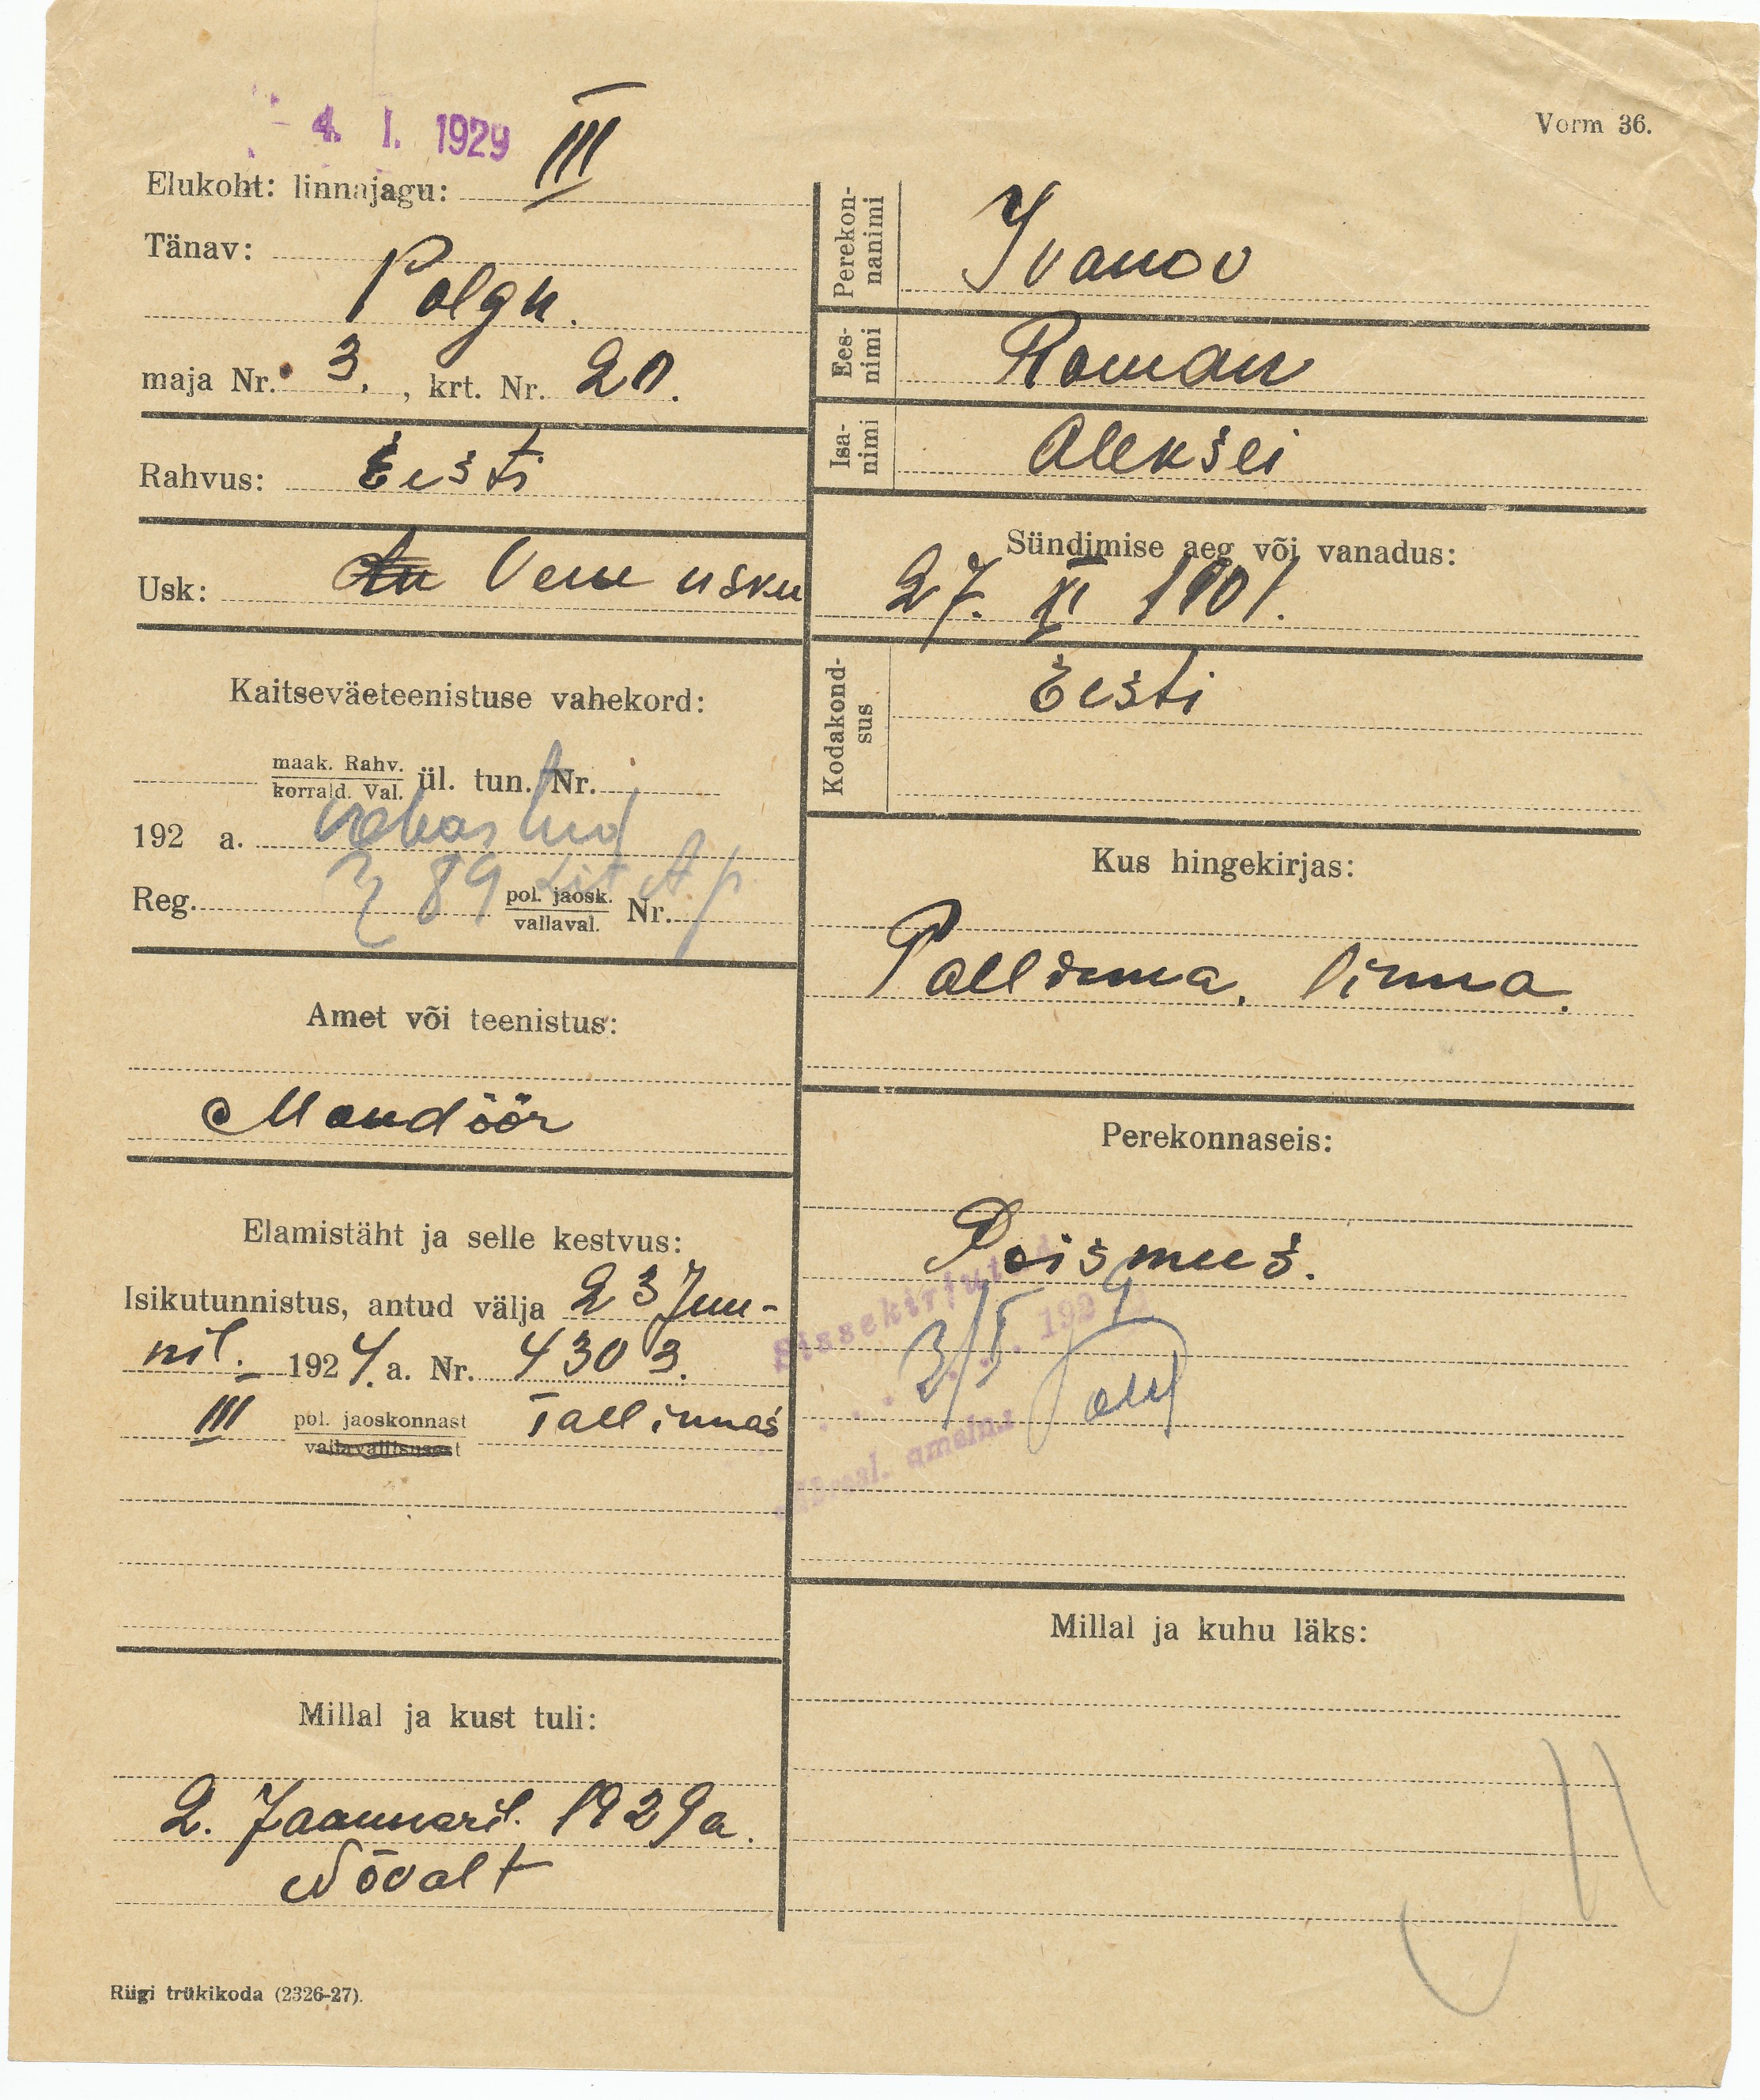 4. I. 1929
Vorm 36.
Elukoht: linnajagu: III
Tänav:
Polgu.
maja Nr. 3. , krt. Nr. 20.
Rahvus: Eesti
Usk: Vene usku
Kaitseväeteenistuse vahekord:
maak. Rahv.
korrald. Val. ül. tun. Nr.
192 a. vabastud
Reg. § 89 Lit A p
pol. jaosk.
vallaval. Nr.
Amet või teenistus:
Mondöör
Elamistäht ja selle kestvus:
Isikutunnistus, antud välja 23 Juu-
nil. 1924. a. Nr. 4303.
III pol. jaoskonnast Tallinnas
vallavalitsusest
Millal ja kust tuli:
2. Jaanuaril. 1929 a.
Nõvalt
Riigi trükikoda (2326-27).
Perekon-
nanimi Ivanov
Ees-
nimi Roman
Isa-
nimi Aleksei
Sündimise aeg või vanadus:
27. XI 1901.
Kodakond-
sus Eesti
Kus hingekirjas:
Tallinna. linna.
Perekonnaseis:
Poismees.
Sissekirjutud
3/I 1929
Millal ja kuhu läks: